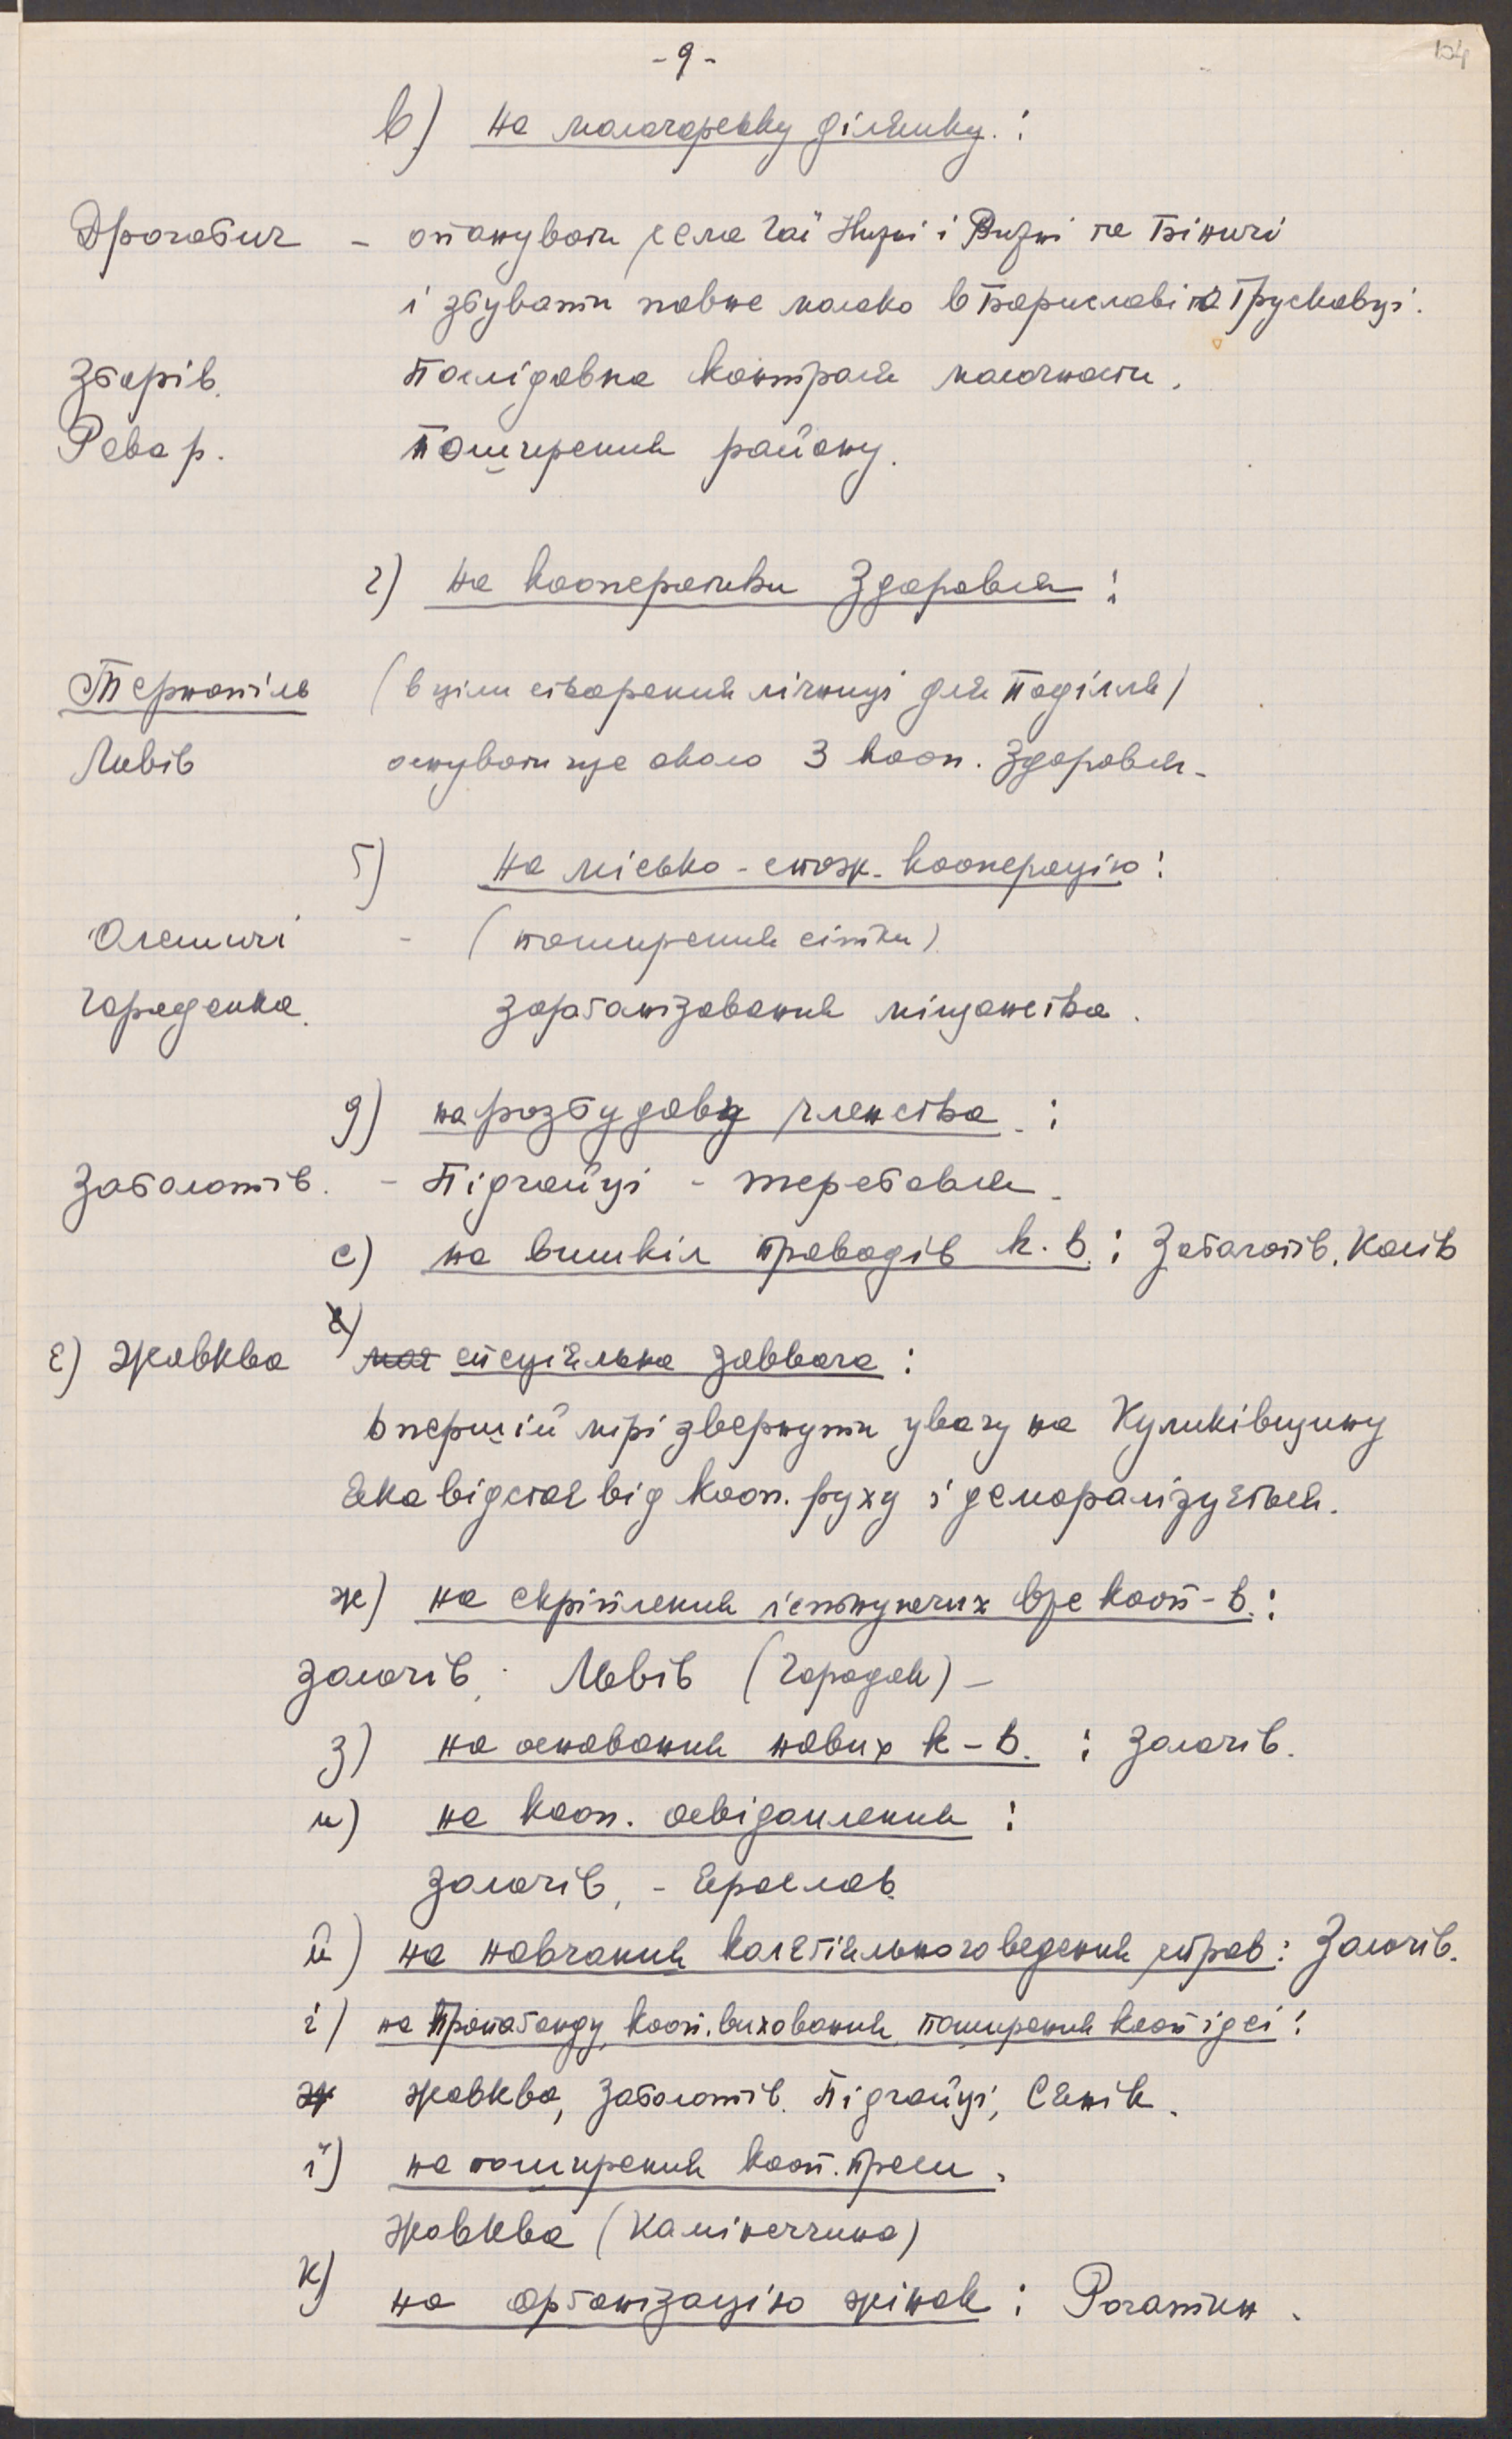 - 9 -
104
в) на молочарську ділянку. :
Дрогобич - опанувати села Гаї Нижні і Вижні та Біничі
і збувати повне молоко в Бориславі та Трускавці.
Зборів. Послідовна контроля молочности.
Рава р. Поширення району.
г) на кооперативи Здоровля :
Тернопіль (в ціли створення лічниці для Поділля)
Львів оснувати ще около 3 кооп. Здоровля -
ґ) на місько-спож. кооперацію :
Олешичі - (поширення сітки).
Городенка. зорґанізування міщанства.
д) на розбудову членства :
Заболотів. - Підгайці - Теребовля.
е) на вишкіл проводів к. в. : Заболотів, Косів
є) Жовква спеціяльна заввага :
в першій мірі звернути увагу на Куликівщину
яка відстає від кооп. руху і деморалізується.
ж) на скріплення існтнуючих вже кооп-в. :
Золочів, Львів (Городок) -
з) на основання нових к-в. : Золочів.
и) на кооп. освідомлення :
Золочів, - Ярослав.
й) на навчання колєґіяльного ведення справ : Золочів.
і) на пропаґанду, кооп. виховання, поширення кооп ідеї :
Жовква, Заболотів. Підгайці, Сянік.
ї) на поширення кооп. преси.
Жовква (Камінеччина)
к) на орґанізацію жінок : Рогатин.